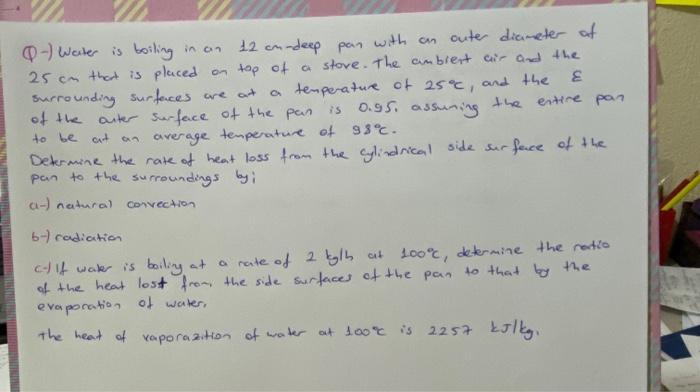 Q-) Water is boiling in an 12 cm-deep pan with an outer diameter of
25 cm that is placed on top of a stove. The ambient air and the
surrounding surfaces are at a temperature of 25°C, and the ε
of the outer surface of the pan is 0.95. assuming the entire pan
to be at an average temperature of 98°C.
Determine the rate of heat loss from the cylindrical side surface of the
pan to the surroundings by;
a-) natural convection
b-) radiation
c-) If water is boiling at a rate of 2 kg/h at 100°C, determine the ratio
of the heat lost from the side surfaces of the pan to that by the
evaporation of water.
The heat of vaporazition of water at 100°C is 2257 kJ/kg.